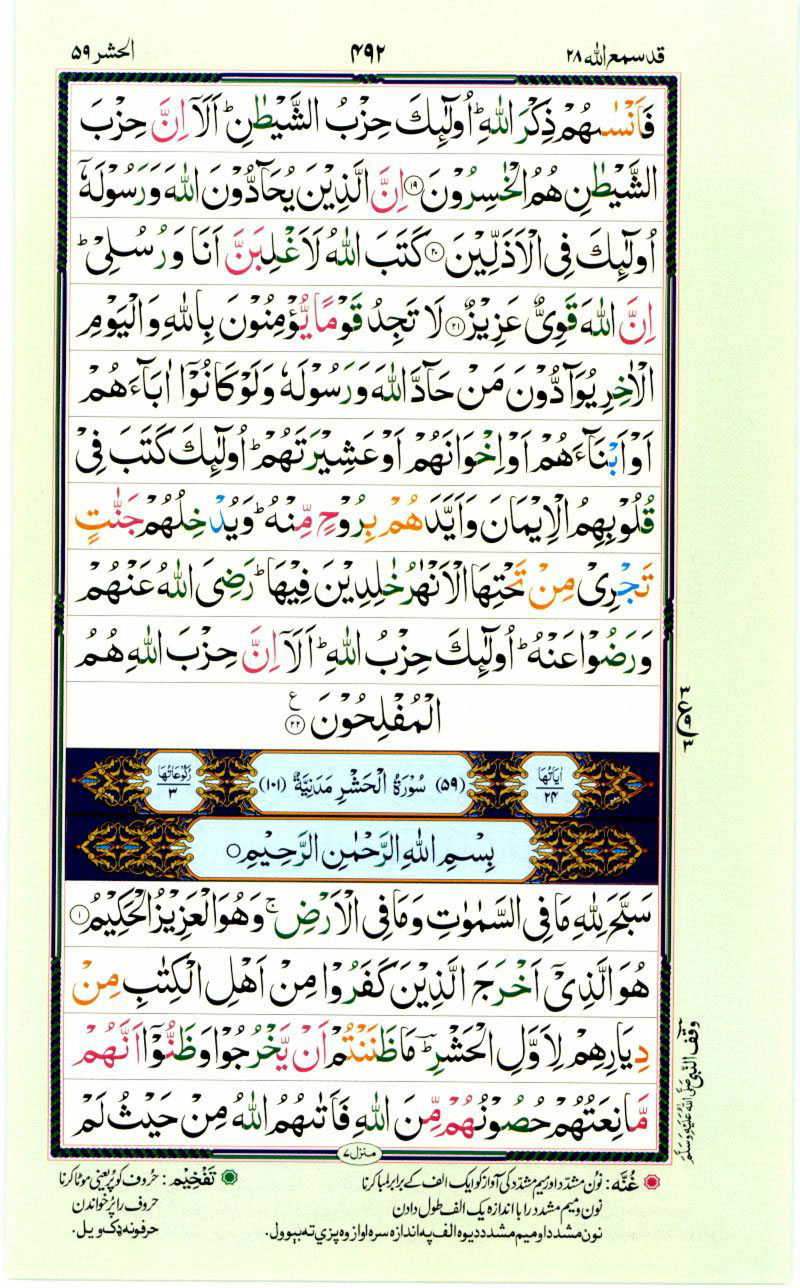 قد سمع الله ٢٨
۴۹۲
الحشر ۵۹
فَاَنْسٰىهُمْ ذِكْرَ اللّٰهِ ؕ اُولٰٓئِكَ حِزْبُ الشَّيْطٰنِ ؕ اَلَاۤ اِنَّ حِزْبَ
الشَّيْطٰنِ هُمُ الْخٰسِرُوْنَ ۝۱۹ اِنَّ الَّذِيْنَ يُحَآدُّوْنَ اللّٰهَ وَ رَسُوْلَهٗۤ
اُولٰٓئِكَ فِى الْاَذَلِّيْنَ ۝۲۰ كَتَبَ اللّٰهُ لَاَغْلِبَنَّ اَنَا وَ رُسُلِىْ ؕ
اِنَّ اللّٰهَ قَوِىٌّ عَزِيْزٌ ۝۲۱ لَا تَجِدُ قَوْمًا يُّؤْمِنُوْنَ بِاللّٰهِ وَ الْيَوْمِ
الْاٰخِرِ يُوَآدُّوْنَ مَنْ حَآدَّ اللّٰهَ وَ رَسُوْلَهٗ وَ لَوْ كَانُوْۤا اٰبَآءَهُمْ
اَوْ اَبْنَآءَهُمْ اَوْ اِخْوَانَهُمْ اَوْ عَشِيْرَتَهُمْ ؕ اُولٰٓئِكَ كَتَبَ فِىْ
قُلُوْبِهِمُ الْاِيْمَانَ وَ اَيَّدَهُمْ بِرُوْحٍ مِّنْهُ ؕ وَ يُدْخِلُهُمْ جَنّٰتٍ
تَجْرِىْ مِنْ تَحْتِهَا الْاَنْهٰرُ خٰلِدِيْنَ فِيْهَا ؕ رَضِىَ اللّٰهُ عَنْهُمْ
وَ رَضُوْا عَنْهُ ؕ اُولٰٓئِكَ حِزْبُ اللّٰهِ ؕ اَلَاۤ اِنَّ حِزْبَ اللّٰهِ هُمُ
الْمُفْلِحُوْنَ ۝۲۲ ع
اٰيَاتُهَا ۲۴
(۵۹) سُوْرَةُ الْحَشْرِ مَدَنِيَّةٌ (۱۰۱)
رُكُوْعَاتُهَا ۳
بِسْمِ اللّٰهِ الرَّحْمٰنِ الرَّحِيْمِ
سَبَّحَ لِلّٰهِ مَا فِى السَّمٰوٰتِ وَ مَا فِى الْاَرْضِ ۚ وَ هُوَ الْعَزِيْزُ الْحَكِيْمُ ۝۱
هُوَ الَّذِىْۤ اَخْرَجَ الَّذِيْنَ كَفَرُوْا مِنْ اَهْلِ الْكِتٰبِ مِنْ
دِيَارِهِمْ لِاَوَّلِ الْحَشْرِ ؕ مَا ظَنَنْتُمْ اَنْ يَّخْرُجُوْا وَ ظَنُّوْۤا اَنَّهُمْ
مَّانِعَتُهُمْ حُصُوْنُهُمْ مِّنَ اللّٰهِ فَاَتٰىهُمُ اللّٰهُ مِنْ حَيْثُ لَمْ
وقف النبى صلى الله عليه وسلم
منزل ۷
غُنَّه : نُون مشدّد اور میم مشدّد کی آواز کو ایک الف کے برابر لمبا کرنا
نون و میم مشدد را با اندازه یک الف طول دادن
نون مشدد او میم مشدد دیوه الف په اندازه سره اواز وه پزې ته بیوول.
تَفْخِيْم : حُروف کو پُر یعنی موٹا کرنا
حروف را پُر خواندن
حرفونه ډک ویل.